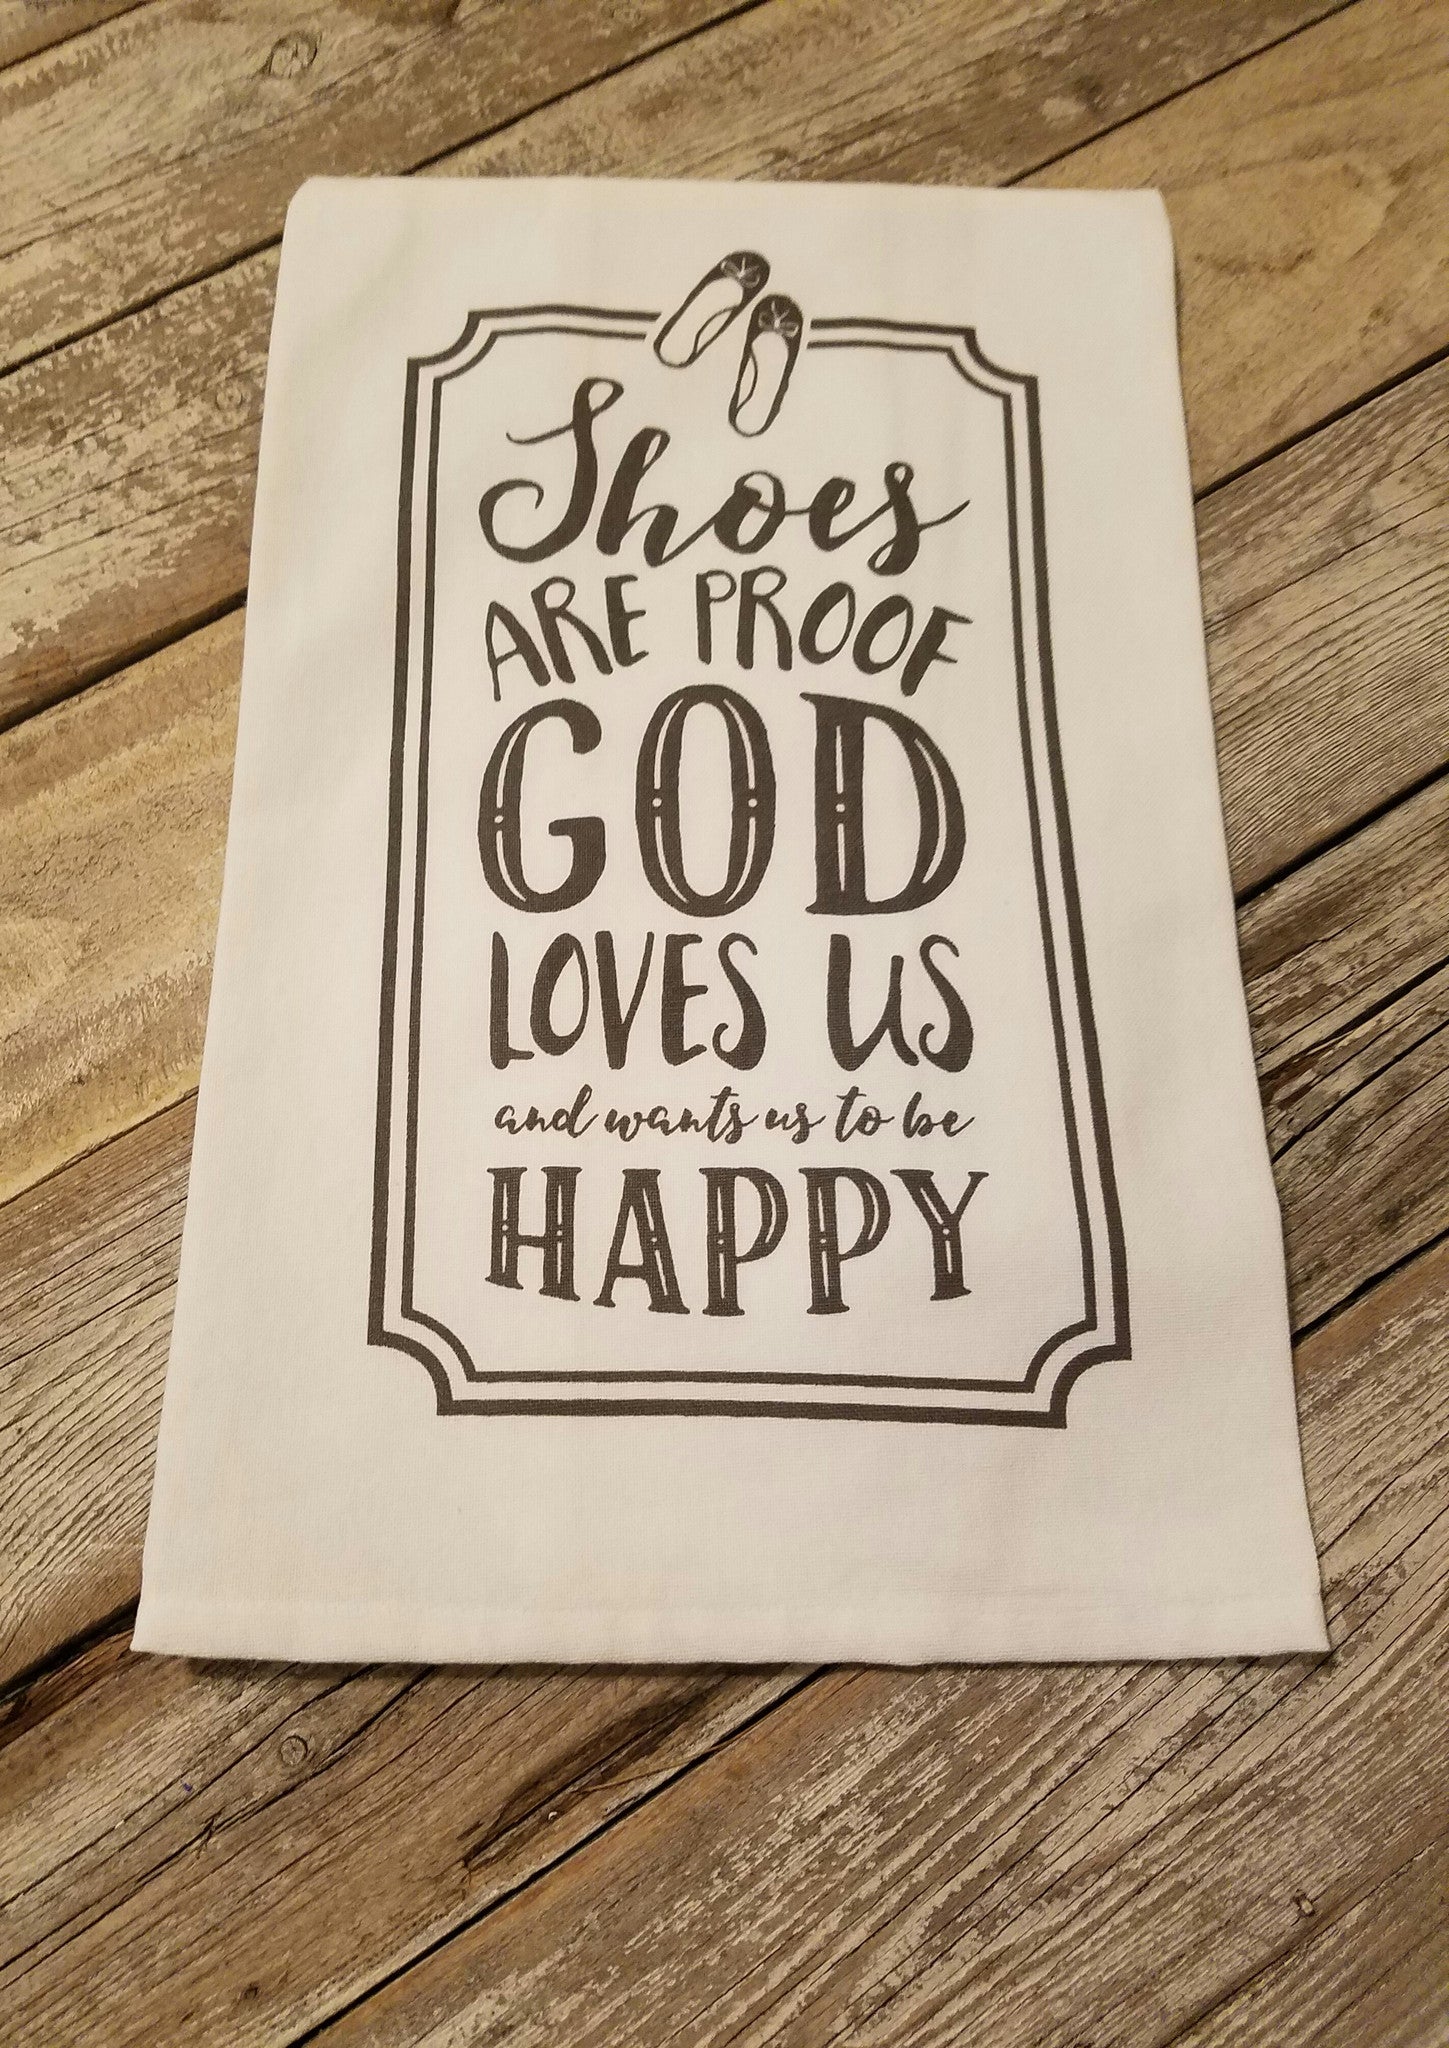 Shoes
ARE PROOF
GOD
LOVES US
and wants us to be
HAPPY